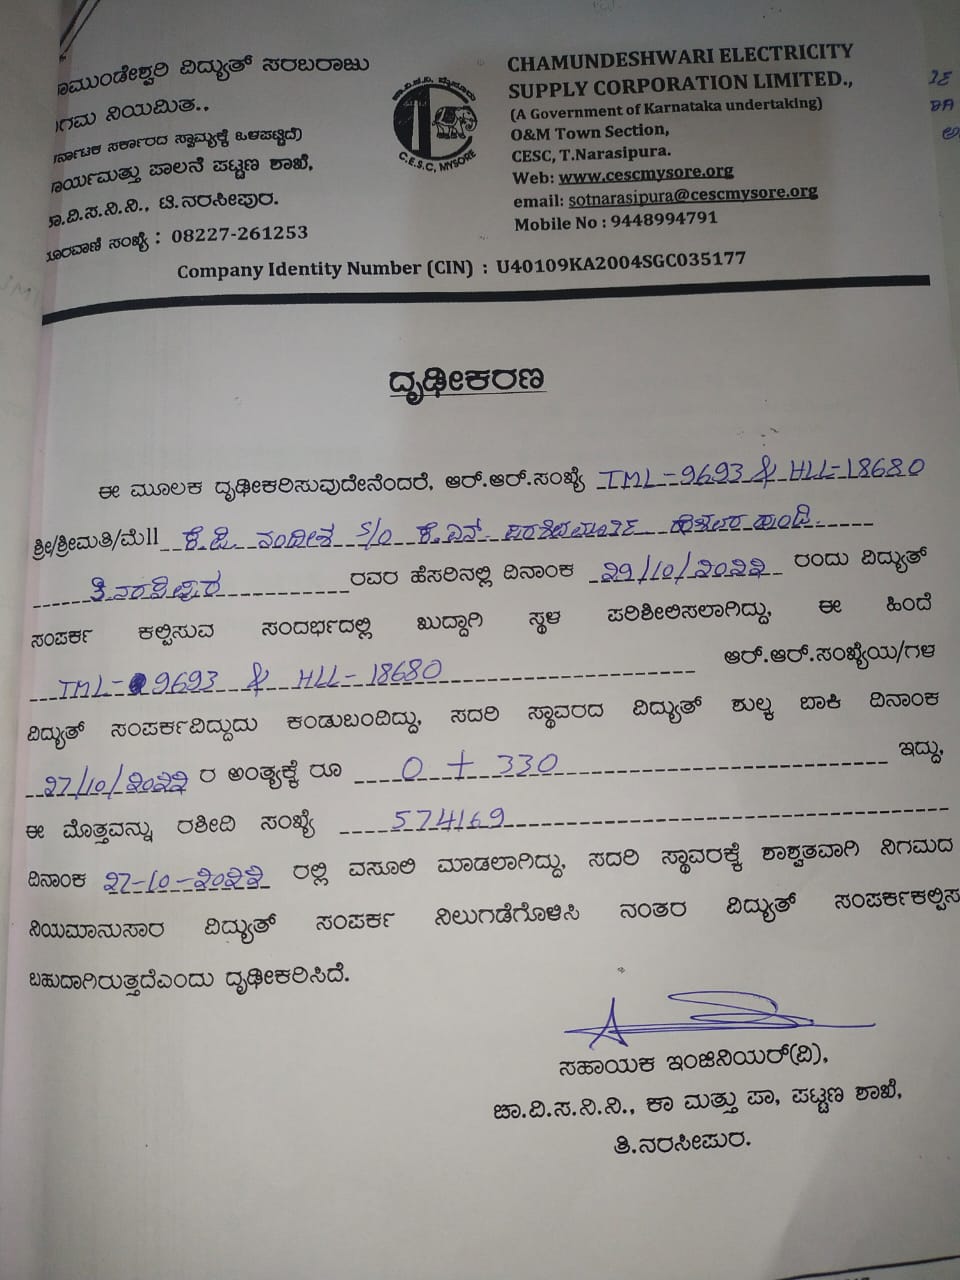 ಚಾಮುಂಡೇಶ್ವರಿ ವಿದ್ಯುತ್ ಸರಬರಾಜು
ನಿಗಮ ನಿಯಮಿತ..
(ಕರ್ನಾಟಕ ಸರ್ಕಾರದ ಸ್ವಾಮ್ಯಕ್ಕೆ ಒಳಪಟ್ಟಿದೆ)
ಕಾರ್ಯಮತ್ತು ಪಾಲನೆ ಪಟ್ಟಣ ಶಾಖೆ,
ಚಾ.ವಿ.ಸ.ನಿ.ನಿ., ಟಿ.ನರಸೀಪುರ.
ದೂರವಾಣಿ ಸಂಖ್ಯೆ : 08227-261253
C.E.S.C, MYSORE
CHAMUNDESHWARI ELECTRICITY
SUPPLY CORPORATION LIMITED.,
(A Government of Karnataka undertaking)
O&M Town Section,
CESC, T.Narasipura.
Web: www.cescmysore.org
email: sotnarasipura@cescmysore.org
Mobile No : 9448994791
Company Identity Number (CIN) : U40109KA2004SGC035177
ದೃಢೀಕರಣ
ಈ ಮೂಲಕ ದೃಢೀಕರಿಸುವುದೇನೆಂದರೆ, ಆರ್.ಆರ್.ಸಂಖ್ಯೆ TML-9693 & HLL-18680
ಶ್ರೀ/ಶ್ರೀಮತಿ/ಮೆ|| ಕೆ.ಪಿ. ನಂದೀಶ S/o ಕೆ.ಎನ್.
ತಿ.ನರಸೀಪುರ ರವರ ಹೆಸರಿನಲ್ಲಿ ದಿನಾಂಕ 29/10/೨೦೨೨ ರಂದು ವಿದ್ಯುತ್
ಸಂಪರ್ಕ ಕಲ್ಪಿಸುವ ಸಂದರ್ಭದಲ್ಲಿ ಖುದ್ದಾಗಿ ಸ್ಥಳ ಪರಿಶೀಲಿಸಲಾಗಿದ್ದು, ಈ ಹಿಂದೆ
TML-9693 & HLL-18680 ಆರ್.ಆರ್.ಸಂಖ್ಯೆಯ/ಗಳ
ವಿದ್ಯುತ್ ಸಂಪರ್ಕವಿದ್ದುದು ಕಂಡುಬಂದಿದ್ದು, ಸದರಿ ಸ್ಥಾವರದ ವಿದ್ಯುತ್ ಶುಲ್ಕ ಬಾಕಿ ದಿನಾಂಕ
27/10/೨೦೨೨ ರ ಅಂತ್ಯಕ್ಕೆ ರೂ 0 + 330 ಇದ್ದು,
ಈ ಮೊತ್ತವನ್ನು ರಶೀದಿ ಸಂಖ್ಯೆ 574169
ದಿನಾಂಕ 27-10-೨೦೨೨ ರಲ್ಲಿ ವಸೂಲಿ ಮಾಡಲಾಗಿದ್ದು, ಸದರಿ ಸ್ಥಾವರಕ್ಕೆ ಶಾಶ್ವತವಾಗಿ ನಿಗಮದ
ನಿಯಮಾನುಸಾರ ವಿದ್ಯುತ್ ಸಂಪರ್ಕ ನಿಲುಗಡೆಗೊಳಿಸಿ ನಂತರ ವಿದ್ಯುತ್ ಸಂಪರ್ಕಕಲ್ಪಿಸ
ಬಹುದಾಗಿರುತ್ತದೆಎಂದು ದೃಢೀಕರಿಸಿದೆ.
ಸಹಾಯಕ ಇಂಜಿನಿಯರ್(ವಿ),
ಚಾ.ವಿ.ಸ.ನಿ.ನಿ., ಕಾ ಮತ್ತು ಪಾ, ಪಟ್ಟಣ ಶಾಖೆ,
ತಿ.ನರಸೀಪುರ.